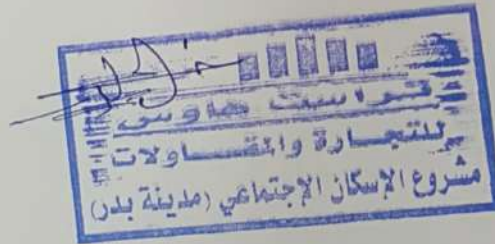 تراست هاوس
للتجارة والمقاولات
مشروع الإسكان الإجتماعي (مدينة بدر)